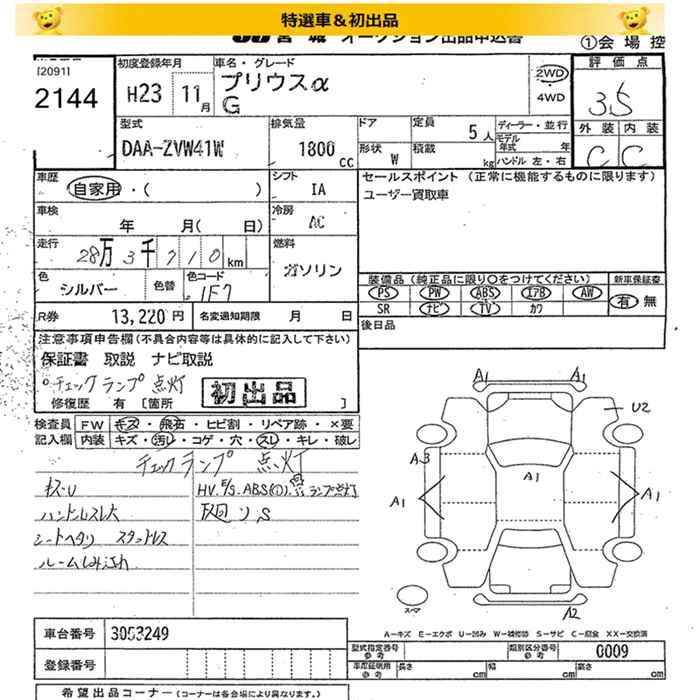 特選車＆初出品
宮城 オークション出品申込書
①会場控
[2091]
2144
初度登録年月
H23 11月
車名・グレード
プリウスα
G
2WD
4WD
評価点
3.5
外装 内装
C C
型式
DAA-ZVW41W
排気量
1800 CC
ドア
形状 W
定員 5人
積載 kg
ディーラー・並行
モデル年式 年
ハンドル 左・右
車歴
自家用・( )
シフト
IA
車検
年 月( 日)
冷房
AC
走行
28万3千710km
燃料
ガソリン
色
シルバー
色替
色コード
1F7
R券 13,220円
名変通知期限 月 日
セールスポイント (正常に機能するものに限ります)
ユーザー買取車
装備品(純正品に限り○をつけてください)
新車保証書
PS PW ABS エアB AW
SR ナビ TV カワ
有 無
後日品
注意事項申告欄(不具合内容等は具体的に記入して下さい)
保証書 取説 ナビ取説
°チェックランプ 点灯
初出品
修復歴 有 [箇所 ]
検査員記入欄
FW キズ・飛石・ヒビ割・リペア跡・×要
内装 キズ・汚レ・コゲ・穴・スレ・キレ・破レ
チェックランプ 点灯
キズ・U
HV.E/S.ABS(!).ランプ点灯
ハンドルスレ大
シートヘタリ スタンドレス
ルームしみ汚れ
A1 A1
U2
A3
A1
A1
A1
A2
スマ
A-キズ E-エクボ U-凹み W-補修跡 S-サビ C-腐食 XX-交換済
車台番号 3053249
登録番号
型式指定番号 参考
類別区分番号 参考
0009
車庫証明用 参考
長さ cm 幅 cm 高さ cm
希望出品コーナー(コーナーは各会場により異なります。)